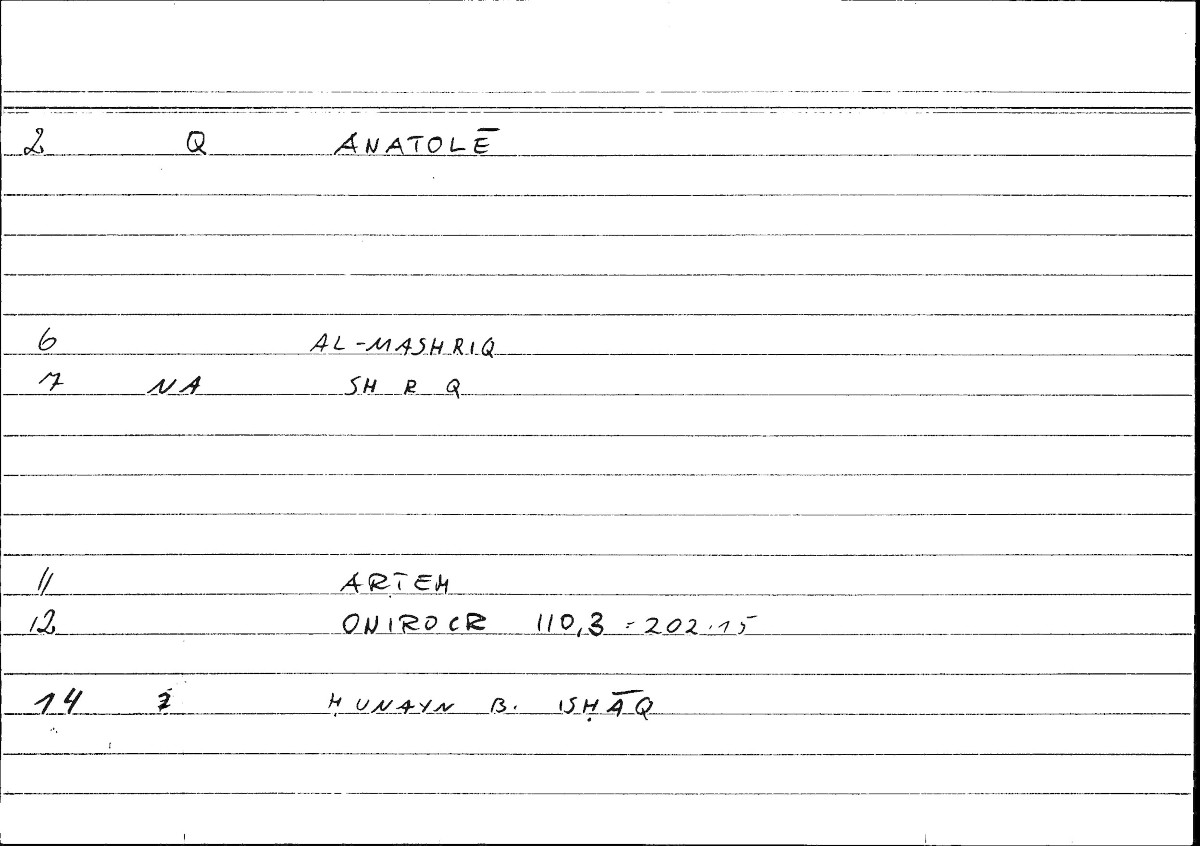 2 Q ANATOLĒ
6 AL-MASHRIQ
7 NA SH R Q
11 ARTEM
12 ONIROCR 110,3 = 202.15
14 ḤUNAYN B. ISḤĀQ